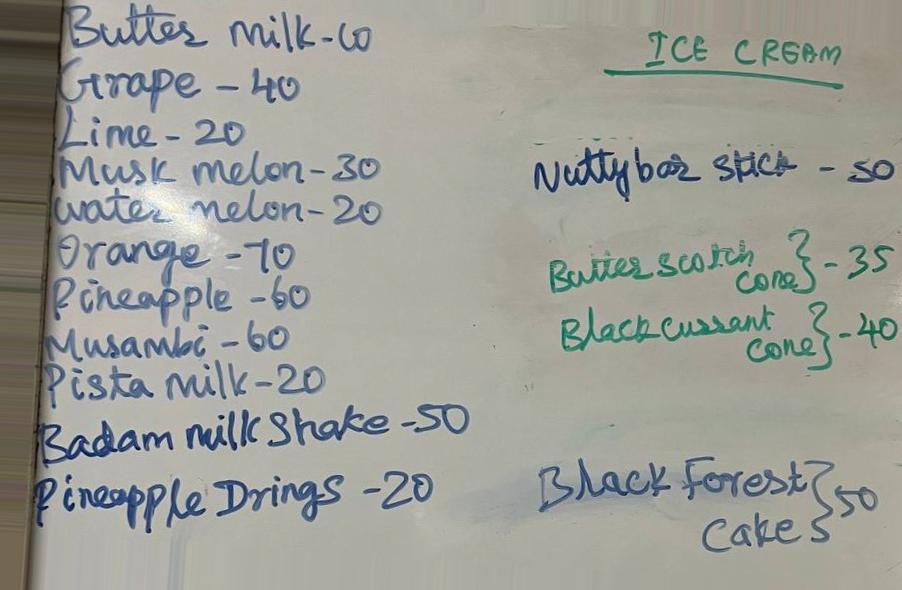 Butter milk-60
Grape - 40
Lime - 20
Musk melon-30
water melon-20
Orange -70
Pineapple -60
Musambi -60
Pista milk-20
Badam milk Shake -50
Pineapple Drings -20
ICE CREAM
Nutty bar stick - 50
Butter scotch
cone} - 35
Black currant
cone} - 40
Black Forest
cake} 50